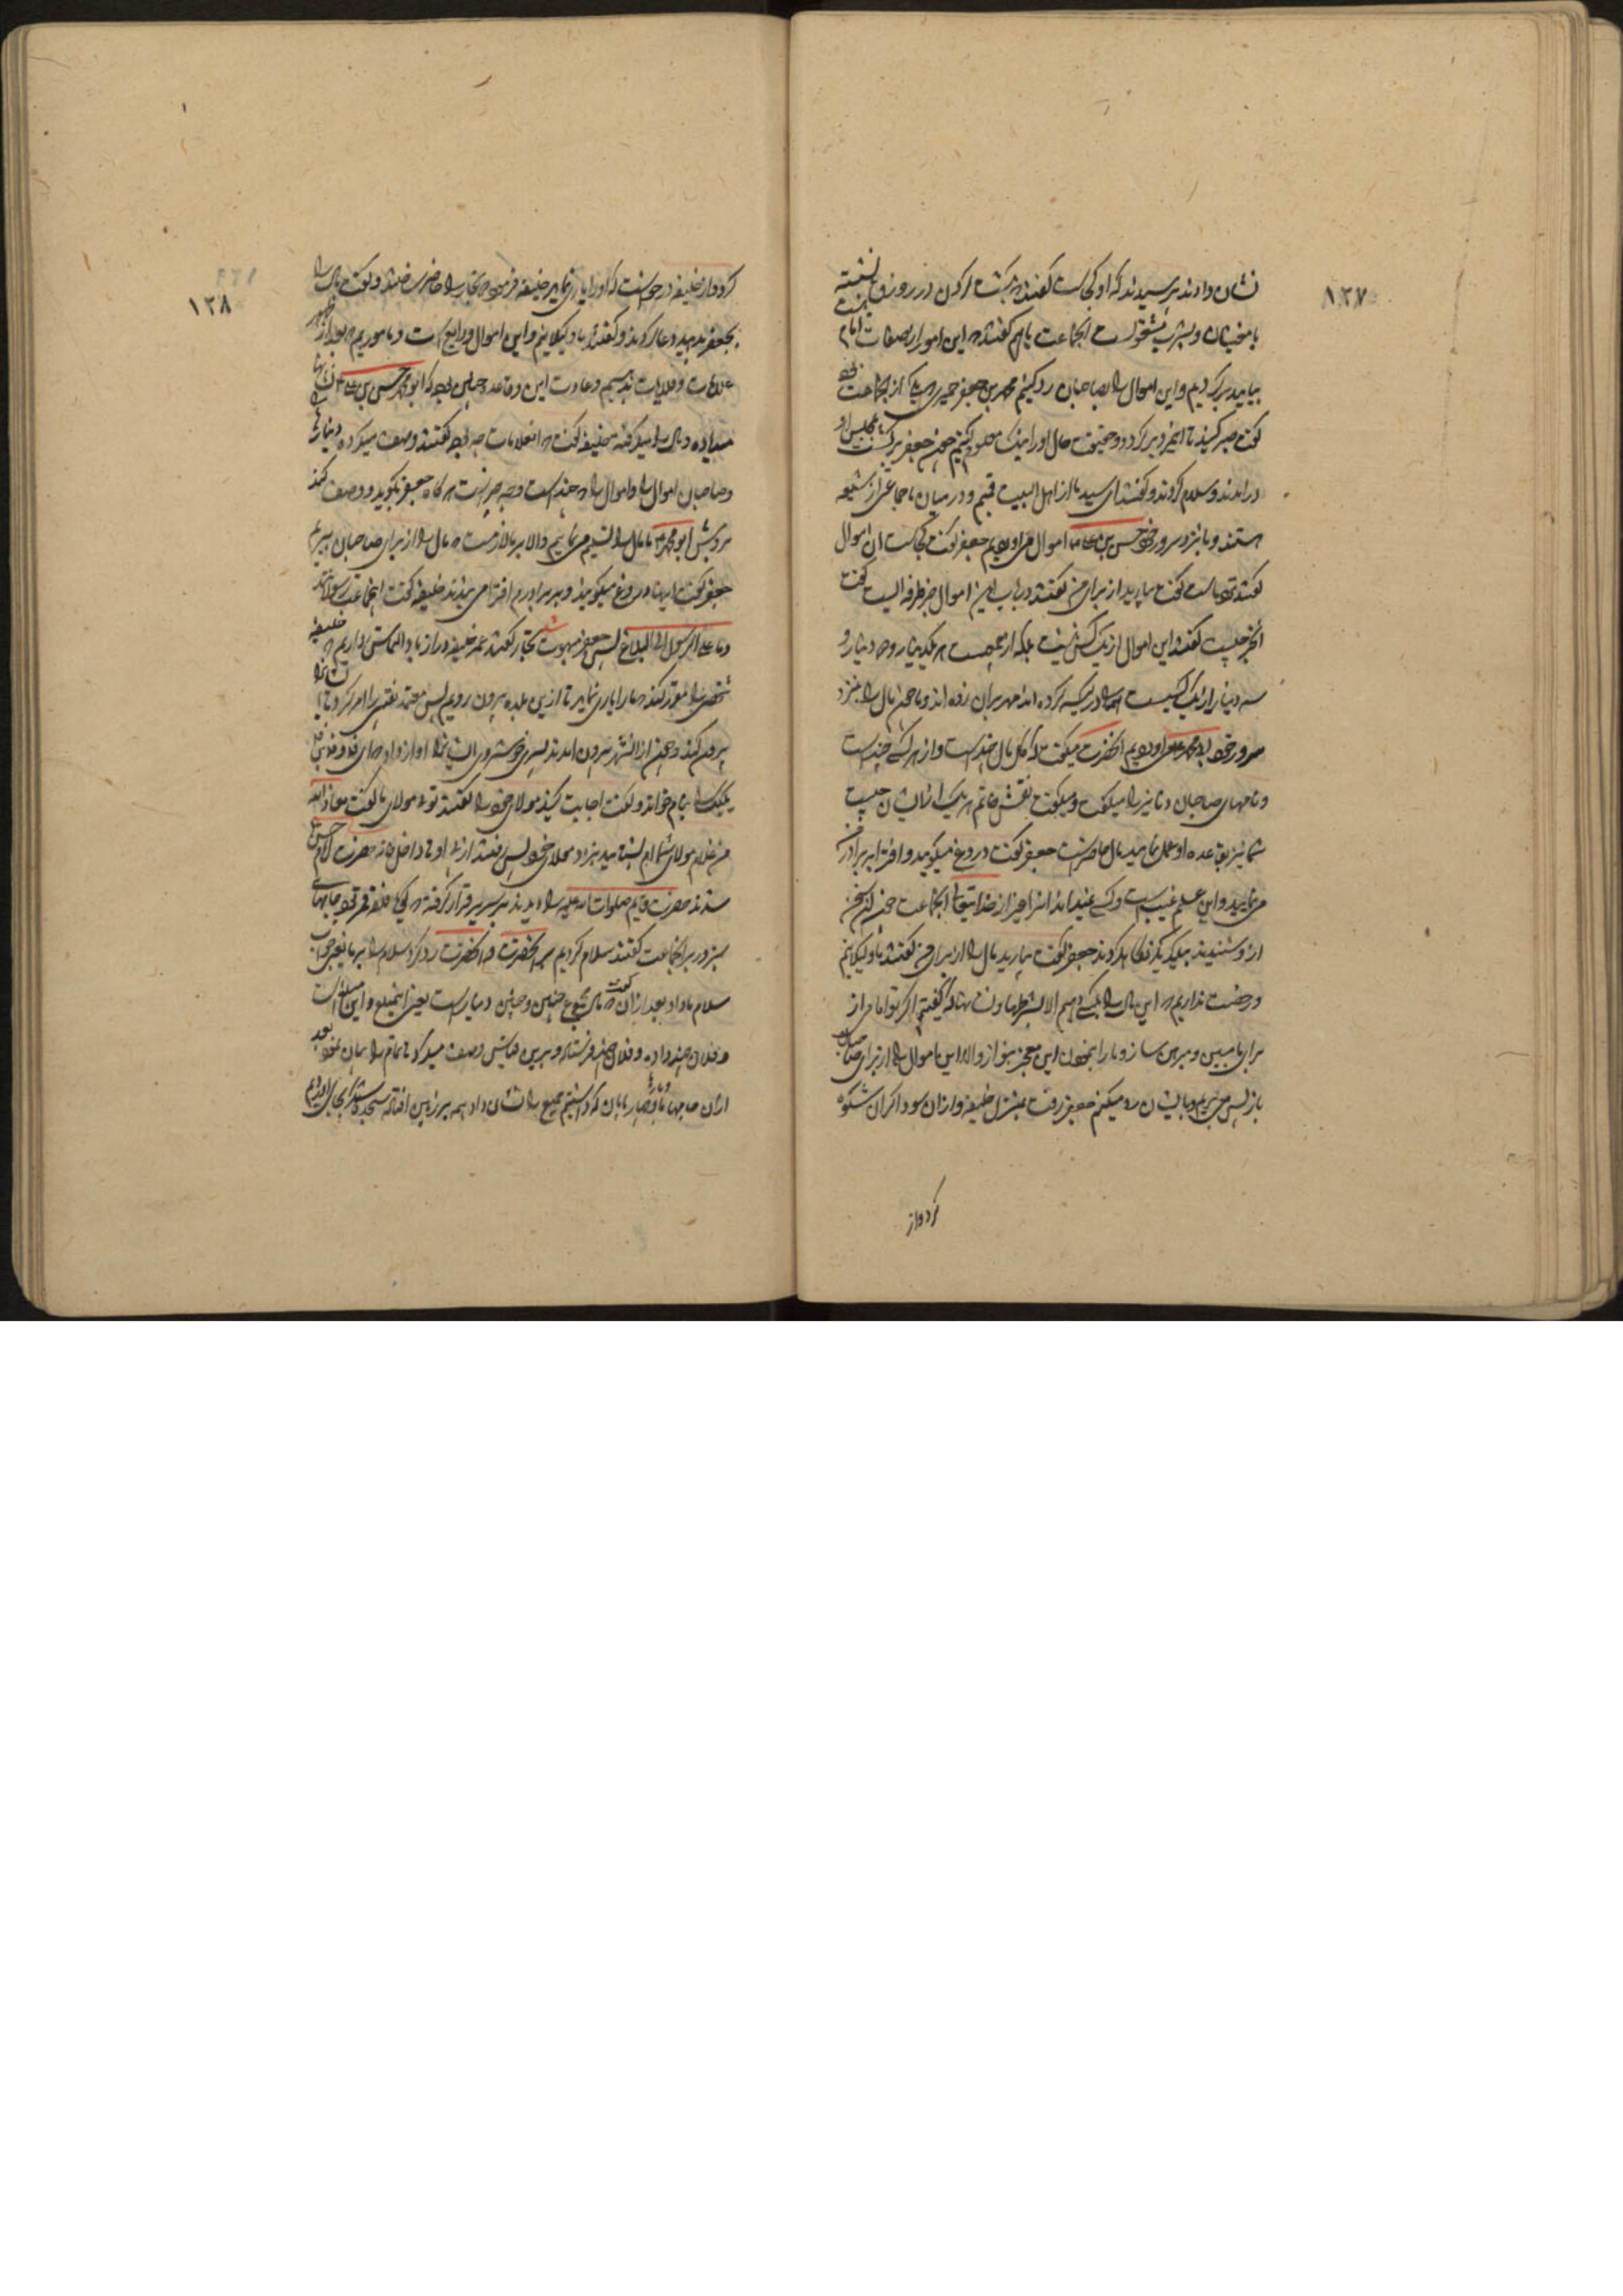 ١٢٧
نشان دادند پرسیدند که او کجاست گفتند بگشت کردن در زورق نشسته
با مخنثان و بشرب مشغولست انجماعت باهم گفتند این امور از صفات امام نیست
بیایید برگردیم و این اموال را بصاحبان رد کنیم محمد بن جعفر حمیری که یکی از انجماعت بود
گفت صبر کنید تا این مرد برگردد و حقیقت حال او را نیک معلوم کنیم چون جعفر برگشت بمجلس او
درامدند و سلام کردند و گفتند ای سید ما از اهل البیت قمیم و در میان ما جماعتی از شیعه
هستند و ما بنزد سرور خود حسن بن علی اموال می اوردیم جعفر گفت کجاست ان اموال
گفتند با ماست گفت بیارید از برای من گفتند در باب این اموال خبر طرفه ایست گفت
ان خبر چیست گفتند این اموال از یک کس نیست بلکه از جمعیست که یک دینار و دو دینار و
سه دینار از یک یک کسیست انها را در کیسه کرده اند مهر بران زده اند و ما چون مال را بنزد
سرور خود ابو محمد می اوردیم انحضرت میگفت که کل مال چند است و از هر کسی چند است
و نامهای صاحبان دنانیر را میگفت و میگفت نقش خاتم هر یک از ایشان چیست
شما نیز بقاعده او عمل نمایید مال حاضرست جعفر گفت دروغ میگویید و افترا بر برادر من
می نمایید و این علم غیب است و کسی نمیداند انرا بغیر از خدایتعالی انجماعت چون این سخن
ازو شنیدند بیکدیگر نگاه کردند جعفر گفت بیارید مال را از برای من گفتند ما وکیلانیم
و رخصت نداریم که این مال را بکسی دهیم الا بشرطها و نشانها که گفتیم اگر تو امامی از
برای ما مبین و مبرهن ساز و ما را بنمودن این معجز بنواز والا این اموال را از برای صاحبان
باز پس می بریم و بایشان رد میکنیم جعفر رفت بمنزل خلیفه و ازان سوداگران شکوه
کرد و از
١٢٨
کرد و از خلیفه درخواست که او را یاری نماید خلیفه فرمود تجار را حاضر ساختند و گفت مال را
بجعفر بدهید دعا کردند و گفتند ما وکیلانیم و این اموال ودایع است و ماموریم که بعد از ظهور
علامات و دلایات بدهیم و عادت این و قاعده چنین بود که ابو محمد حسن بن علی نشانها
میداده و مال را میگرفته خلیفه گفت که ان علامات چه بود گفتند وصف میکرده دینارها را
و صاحبان اموال را و اموال را که چند است و چه چیزست هرگاه جعفر بگوید و وصف کند
بروش ابو محمد ما مال را تسلیم می نماییم والا بر ما لازمست که مال را از برای صاحبان ببریم
جعفر گفت اینها دروغ میگویند و بر برادرم افترا می بندند خلیفه گفت انجماعت رسولانند
و ما علی الرسول الا البلاغ پس جعفر مبهوت شد تجار گفتند عمر خلیفه دراز باد التماس داریم که خلیفه
شخصی را مقرر کند که ما را یاری نماید تا ازین بلده بیرون رویم پس معتمد نقیبی را امر کرد تا ایشان را
بیرون کند و چون ازان شهر بیرون امدند پسری خوش روی ایشان را اواز داد
یک یک را بنام خواند و گفت اجابت کنید مولای خود را گفتند تویی مولای ما گفت معاذ الله
من غلام مولای شمایم بشتابید بنزد مولای خود پس رفتند از پی او تا داخل خانه حضرت امام حسن
شدند حضرت قایم صلوات الله علیه را دیدند بر سریر قرار گرفته که گویا فلقه قمر بود جامهای
سبز در بر انجماعت گفتند سلام کردیم بر انحضرت و انحضرت رد کرد سلام را بر ما یعنی جواب
سلام ما داد بعد ازان گفت که مال مجموع چنین و چنین دینارست یعنی این مبلغ و این مبلغ است
و فلان چند داده و فلان چند فرستاده و برین قیاس وصف میکرد تا تمام را بیان نمود بعد
ازان جامها و بارها و چهارپایان که داشتیم جمیع را نشان داد همه بر زمین افتاده سجده شکر بجای اوردیم